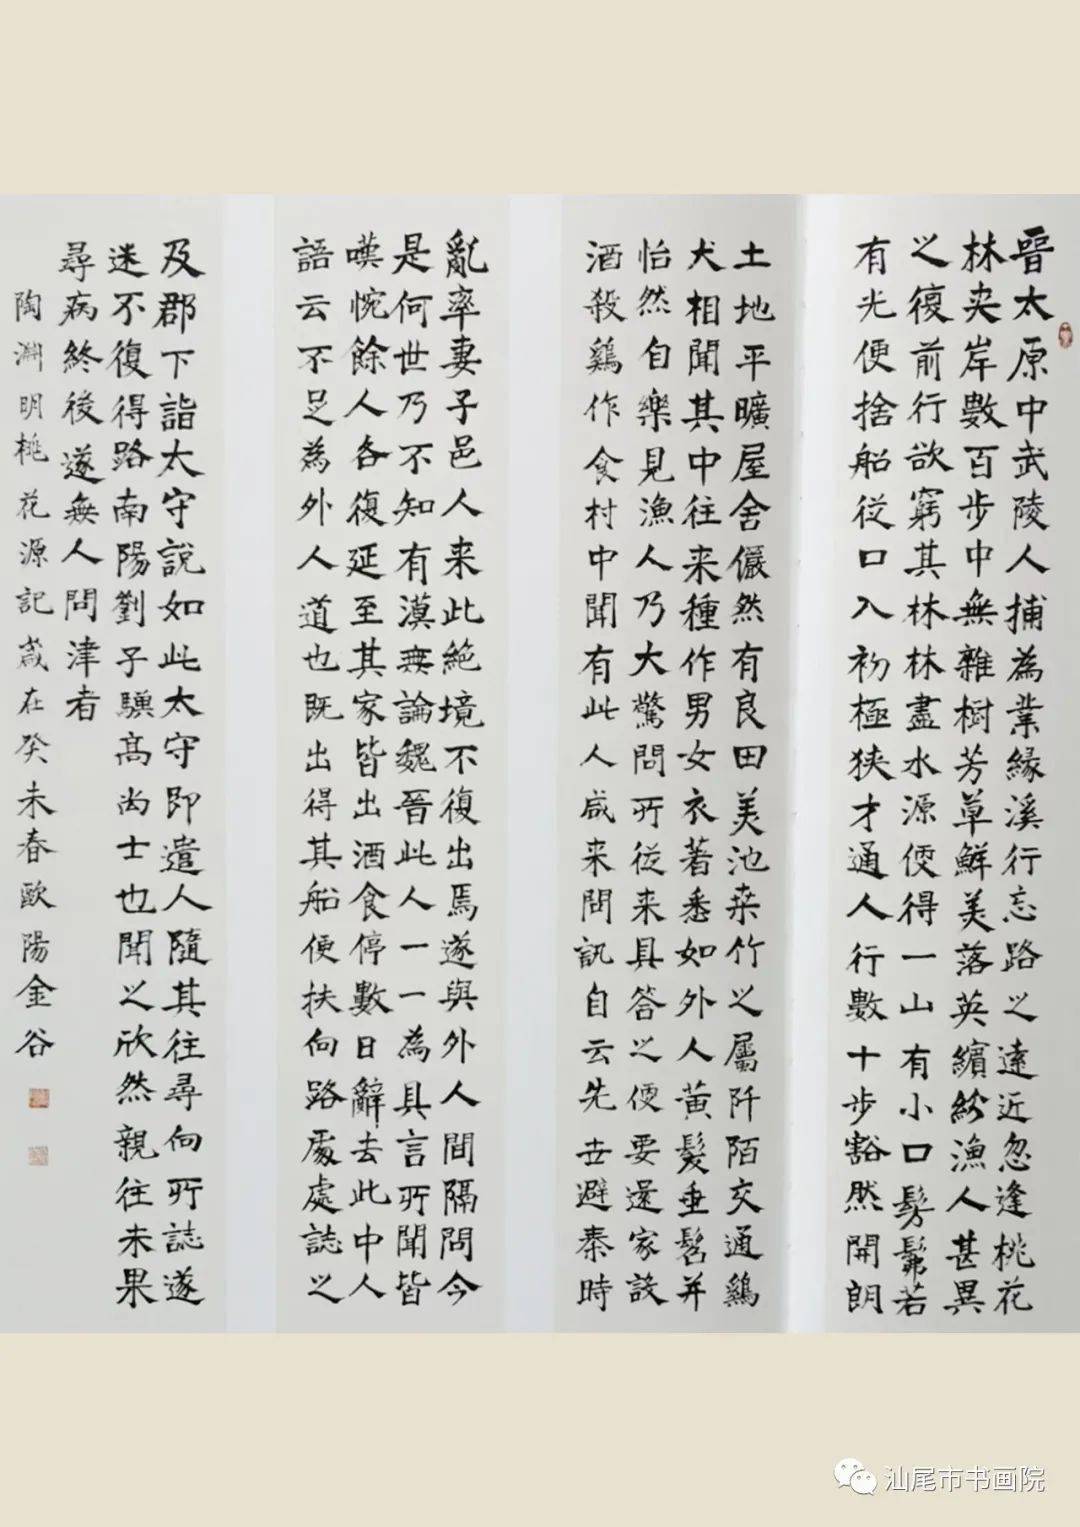 晉太原中武陵人捕為業緣溪行忘路之遠近忽逢桃花
林夾岸數百步中無雜樹芳草鮮美落英繽紛漁人甚異
之復前行欲窮其林林盡水源便得一山有小口髣髴若
有光便捨船從口入初極狹才通人行數十步豁然開朗
土地平曠屋舍儼然有良田美池桒竹之屬阡陌交通鷄
犬相聞其中往来種作男女衣著悉如外人黃髮垂髫并
怡然自樂見漁人乃大驚問所從来具答之便要還家設
酒殺鷄作食村中聞有此人咸来問訊自云先世避秦時
亂率妻子邑人来此絕境不復出焉遂與外人間隔問今
是何世乃不知有漢無論魏晉此人一一為具言所聞皆
嘆惋餘人各復延至其家皆出酒食停數日辭去此中人
語云不足為外人道也既出得其船便扶向路處處誌之
及郡下詣太守說如此太守即遣人隨其往尋向所誌遂
迷不復得路南陽劉子驥高尚士也聞之欣然親往未果
尋病終後遂無人問津者
陶淵明桃花源記歲在癸未春歐陽金谷
汕尾市书画院